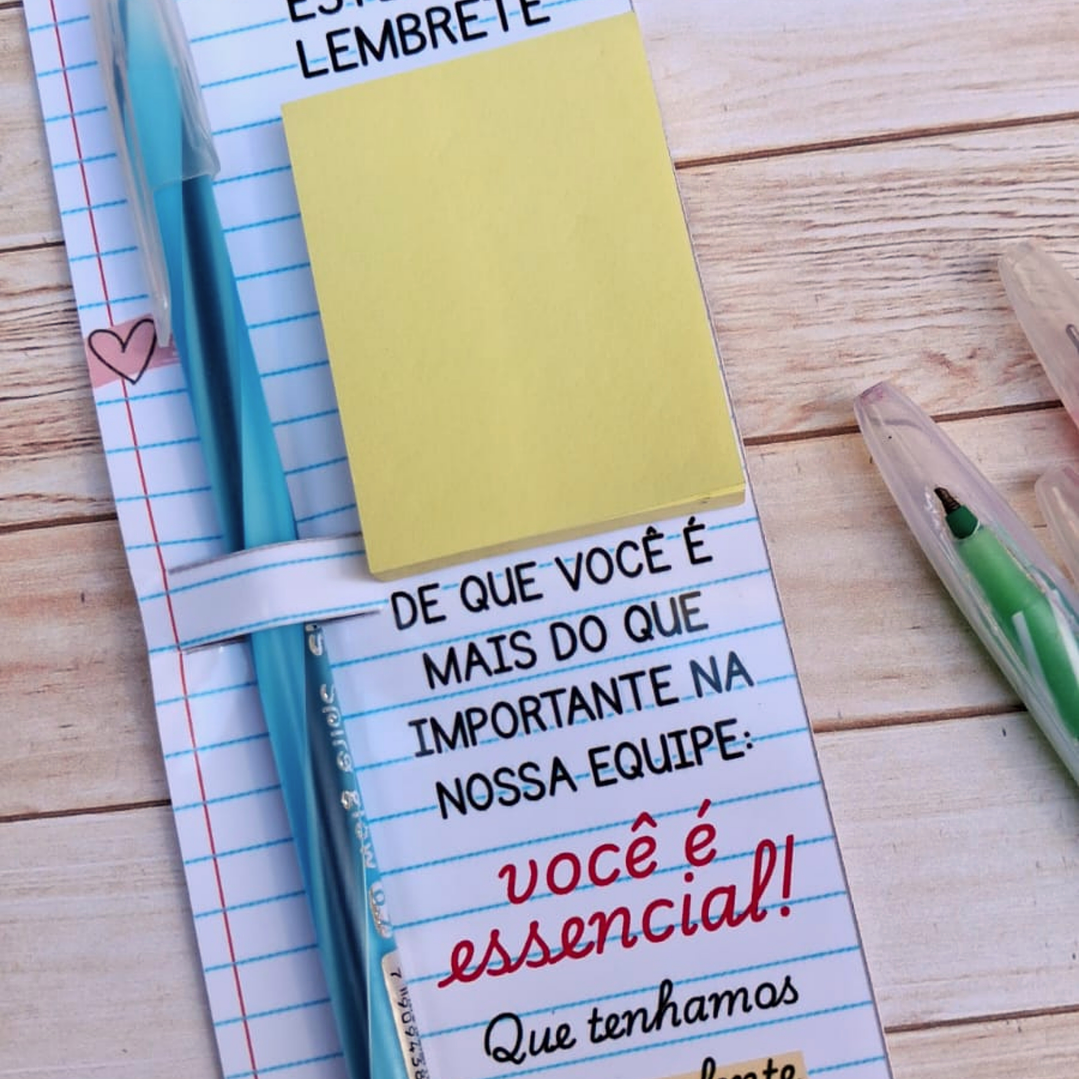 LEMBRETE
DE QUE VOCÊ É
MAIS DO QUE
IMPORTANTE NA
NOSSA EQUIPE:
você é
essencial!
Que tenhamos